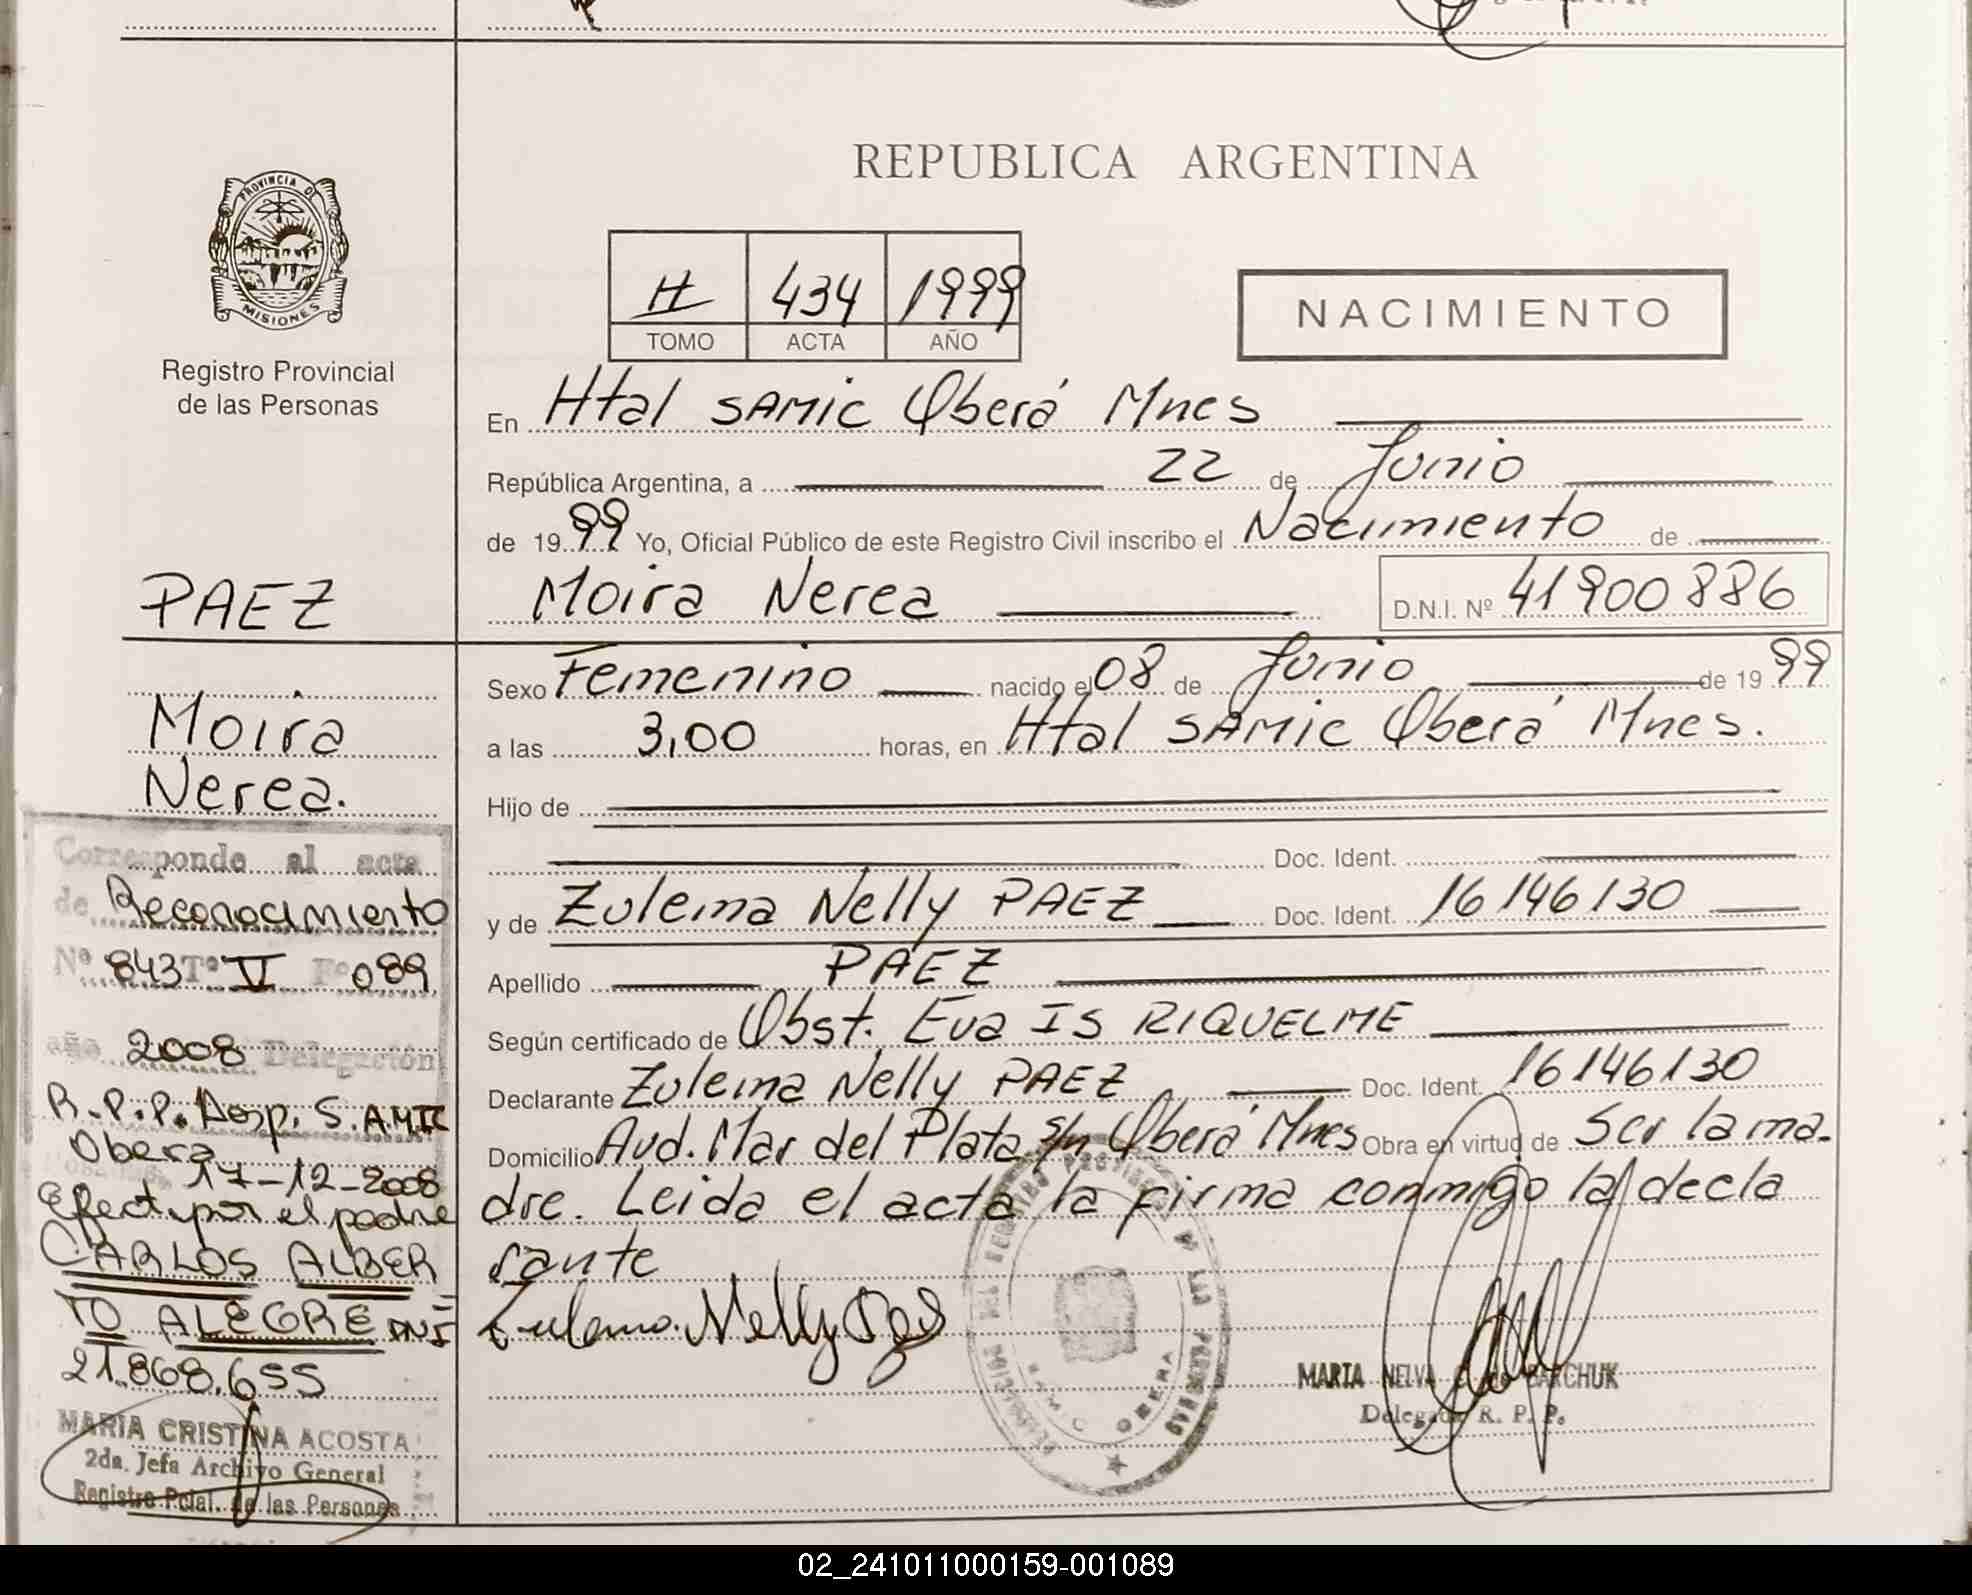 REPUBLICA ARGENTINA
PROVINCIA DE
MISIONES
Registro Provincial
de las Personas
II 434 1999
TOMO ACTA AÑO
NACIMIENTO
En Htal SAMIC Oberá Mnes
República Argentina, a 22 de Junio
de 1999 Yo, Oficial Público de este Registro Civil inscribo el Nacimiento de
Moira Nerea D.N.I. Nº 41900886
Sexo Femenino nacido el 08 de Junio de 1999
a las 3,00 horas, en Htal SAMIC Oberá Mnes.
Hijo de
Doc. Ident.
y de Zulema Nelly PAEZ Doc. Ident. 16146130
Apellido PAEZ
Según certificado de Obst. Eva IS RIQUELME
Declarante Zulema Nelly PAEZ Doc. Ident. 16146130
Domicilio Avd. Mar del Plata s/n Oberá Mnes Obra en virtud de Ser la ma-
dre. Leida el acta la firma conmigo la decla
rante
Zulema Nelly Paez
MARIA NELVA de BARCHUK
Delegada R. P. P.
PAEZ
Moira
Nerea.
Corresponde al acta
de Reconocimiento
Nº 843 Tº V Fº 089
año 2008 Delegación
R.P.P. Hosp. S.AMIC
Obera
17-12-2008
Efect. por el padre
CARLOS ALBER
TO ALEGRE DNI
21.868.655
MARIA CRISTINA ACOSTA
2da. Jefa Archivo General
Registro Pcial. de las Personas
02_241011000159-001089